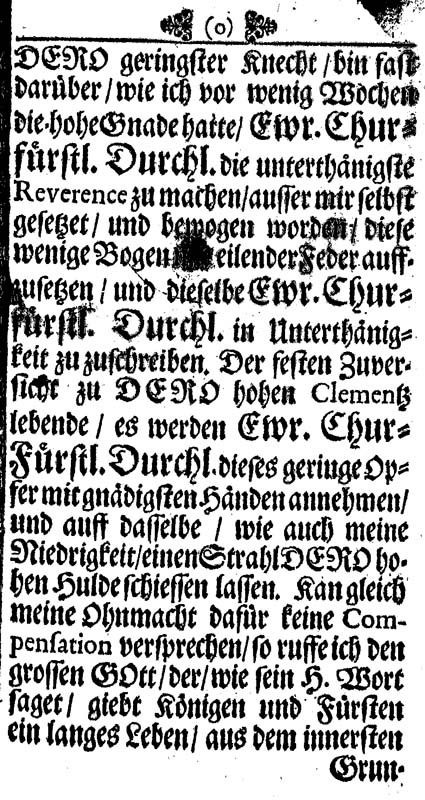 (o)
DERO geringster Knecht / bin fast
darüber / wie ich vor wenig Wochen
die hohe Gnade hatte / Ewr. Chur⸗
fürstl. Durchl. die unterthänigste
Reverence zu machen / ausser mir selbst
gesetzet / und bewogen worden / diese
wenige Bogen eilender Feder auff⸗
zusetzen / und dieselbe Ewr. Chur⸗
fürstl. Durchl. in Unterthänig⸗
keit zu zuschreiben. Der festen Zuver⸗
sicht zu DERO hohen Clementz
lebende / es werden Ewr. Chur⸗
Fürstl. Durchl. dieses geringe Op⸗
fer mit gnädigsten Händen annehmen /
und auff dasselbe / wie auch meine
Niedrigkeit / einen Strahl DERO ho⸗
hen Hulde schiessen lassen. Kan gleich
meine Ohnmacht dafür keine Com-
pensation versprechen / so ruffe ich den
grossen GOtt / der / wie sein H. Wort
saget / giebt Königen und Fürsten
ein langes Leben / aus dem innersten
Grun⸗